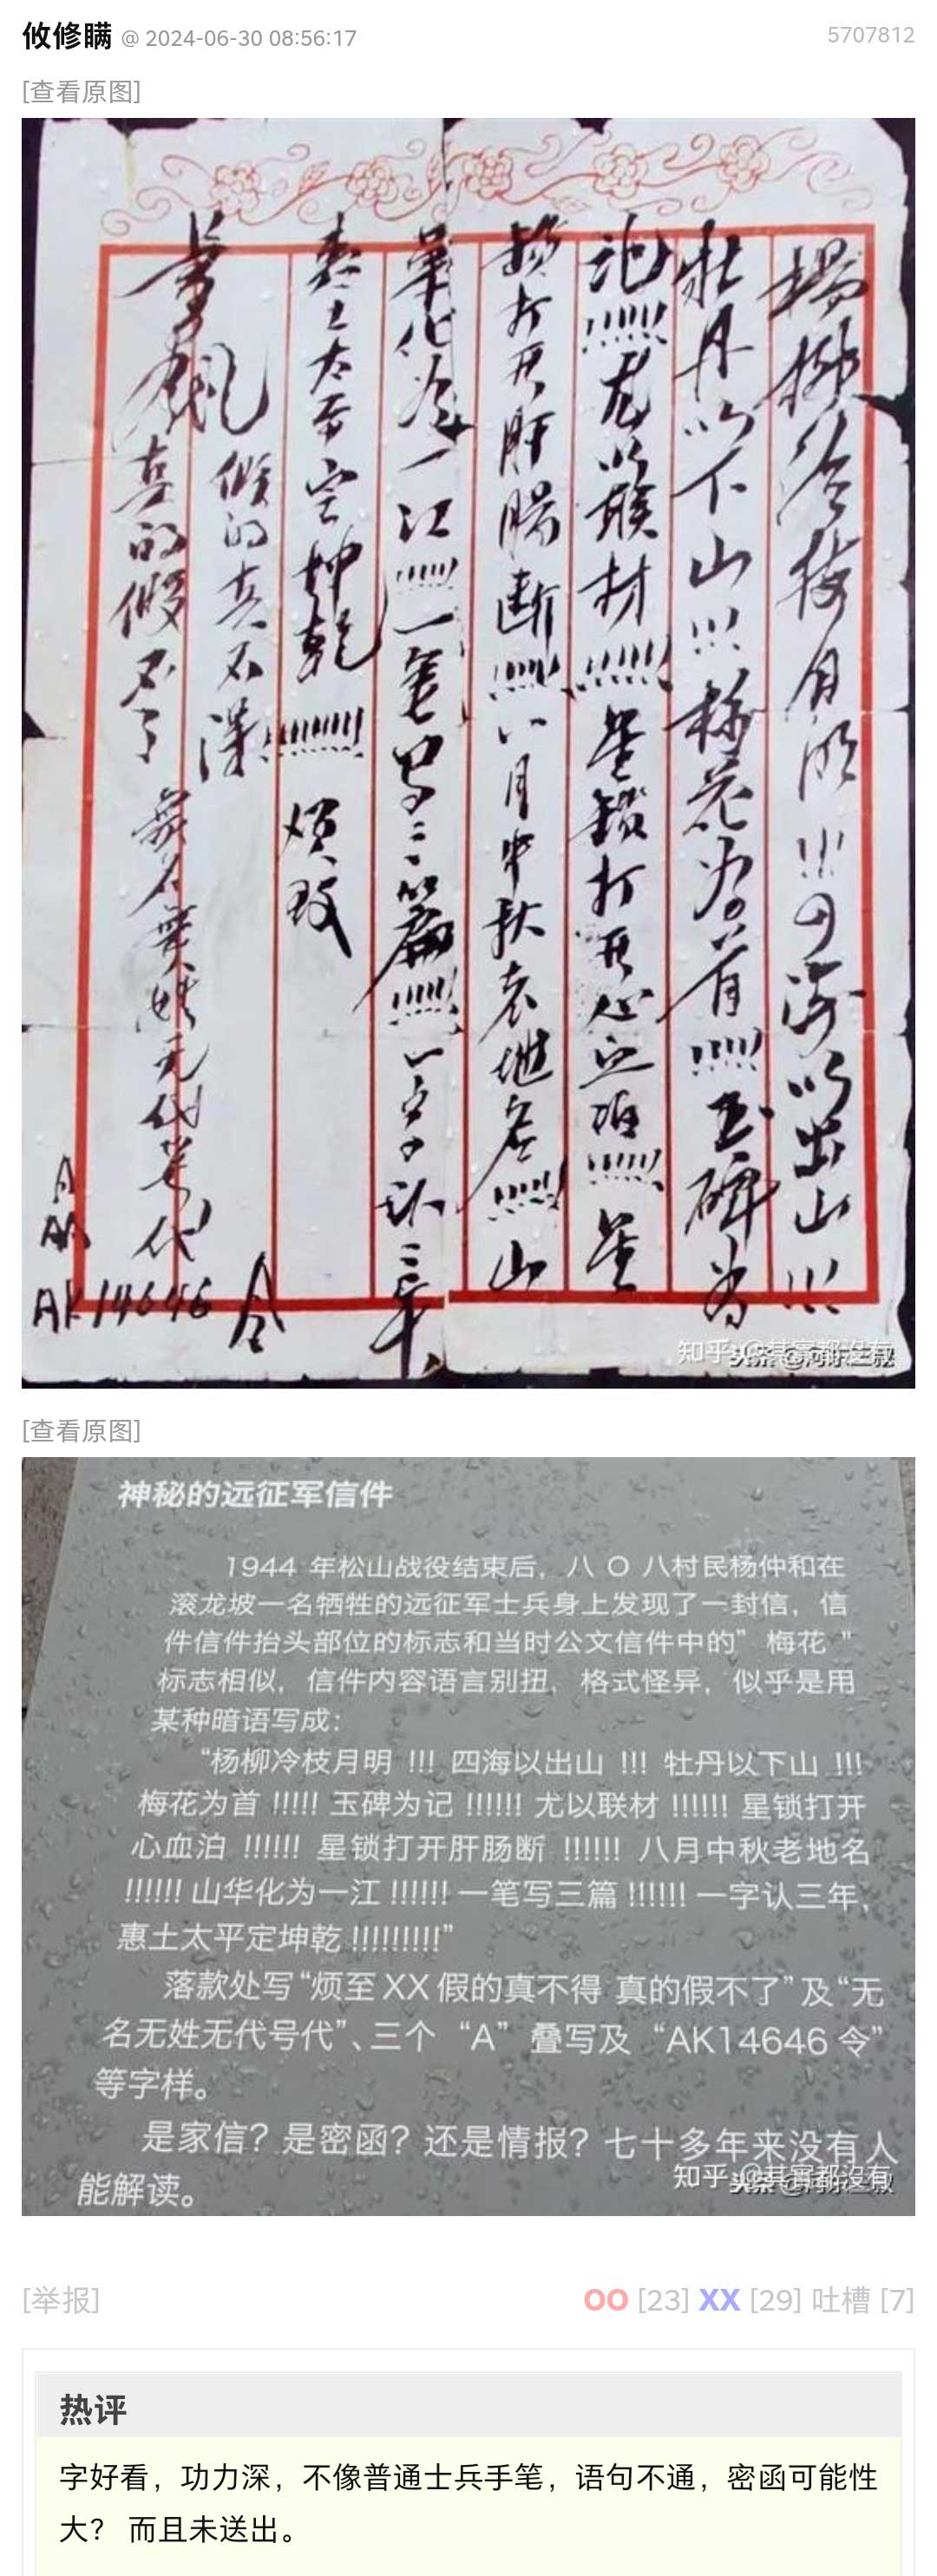 攸修瞒 @ 2024-06-30 08:56:17
5707812
[查看原图]
楊柳冷枝月明!!!四海以出山!!!
牡丹以下山!!!梅花为首!!!!!玉碑为
记!!!!!!尤以联材!!!!!!星锁打开心血泊!!!!!!星
锁打开肝腸断!!!!!!八月中秋老地名!!!!!!山
華化为一江!!!!!!一笔写三篇!!!!!!一字认三年
惠土太平定坤乾!!!!!!!!!
烦致
假的真不得
真的假不了
無名無姓无代号代
AK14646 令
知乎
[查看原图]
神秘的远征军信件
1944 年松山战役结束后,八 〇 八村民杨仲和在
滚龙坡一名牺牲的远征军士兵身上发现了一封信,信
件信件抬头部位的标志和当时公文信件中的” 梅花 ”
标志相似,信件内容语言别扭、格式怪异,似乎是用
某种暗语写成:
“杨柳冷枝月明 !!! 四海以出山 !!! 牡丹以下山 !!!
梅花为首 !!!!! 玉碑为记 !!!!!! 尤以联材 !!!!!! 星锁打开
心血泊 !!!!!! 星锁打开肝肠断 !!!!!! 八月中秋老地名
!!!!!! 山华化为一江 !!!!!! 一笔写三篇 !!!!!! 一字认三年,
惠土太平定坤乾 !!!!!!!!!”
落款处写“烦至 XX 假的真不得 真的假不了”及“无
名无姓无代号代”、三个 “A” 叠写及 “AK14646 令”
等字样。
是家信? 是密函? 还是情报? 七十多年来没有人
能解读。
知乎
[举报]
OO [23] XX [29] 吐槽 [7]
热评
字好看，功力深，不像普通士兵手笔，语句不通，密函可能性
大？ 而且未送出。